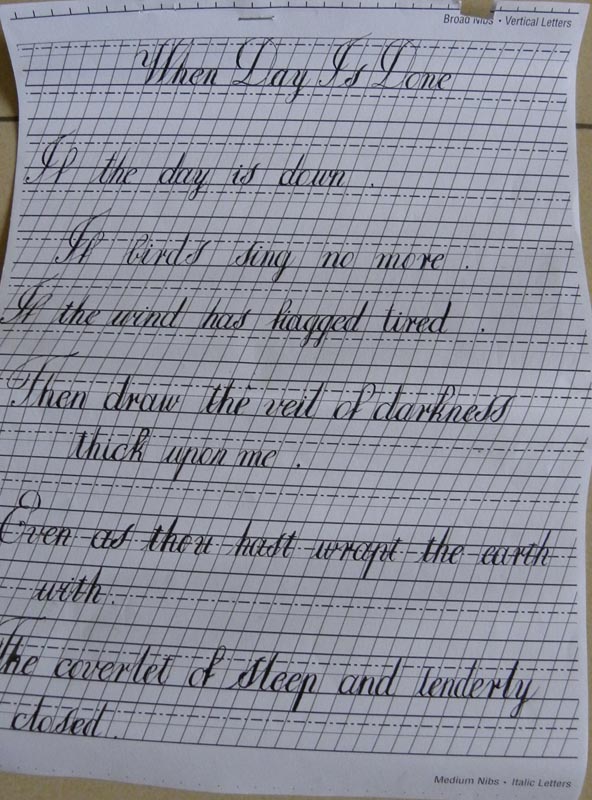 Broad Nibs • Vertical Letters
When Day Is Done
If the day is down .
If birds sing no more .
If the wind has hagged tired .
Then draw the veil of darkness
thick upon me .
Even as thou hast wrapt the earth
with .
The coverlet of sleep and tenderly
closed .
Medium Nibs • Italic Letters